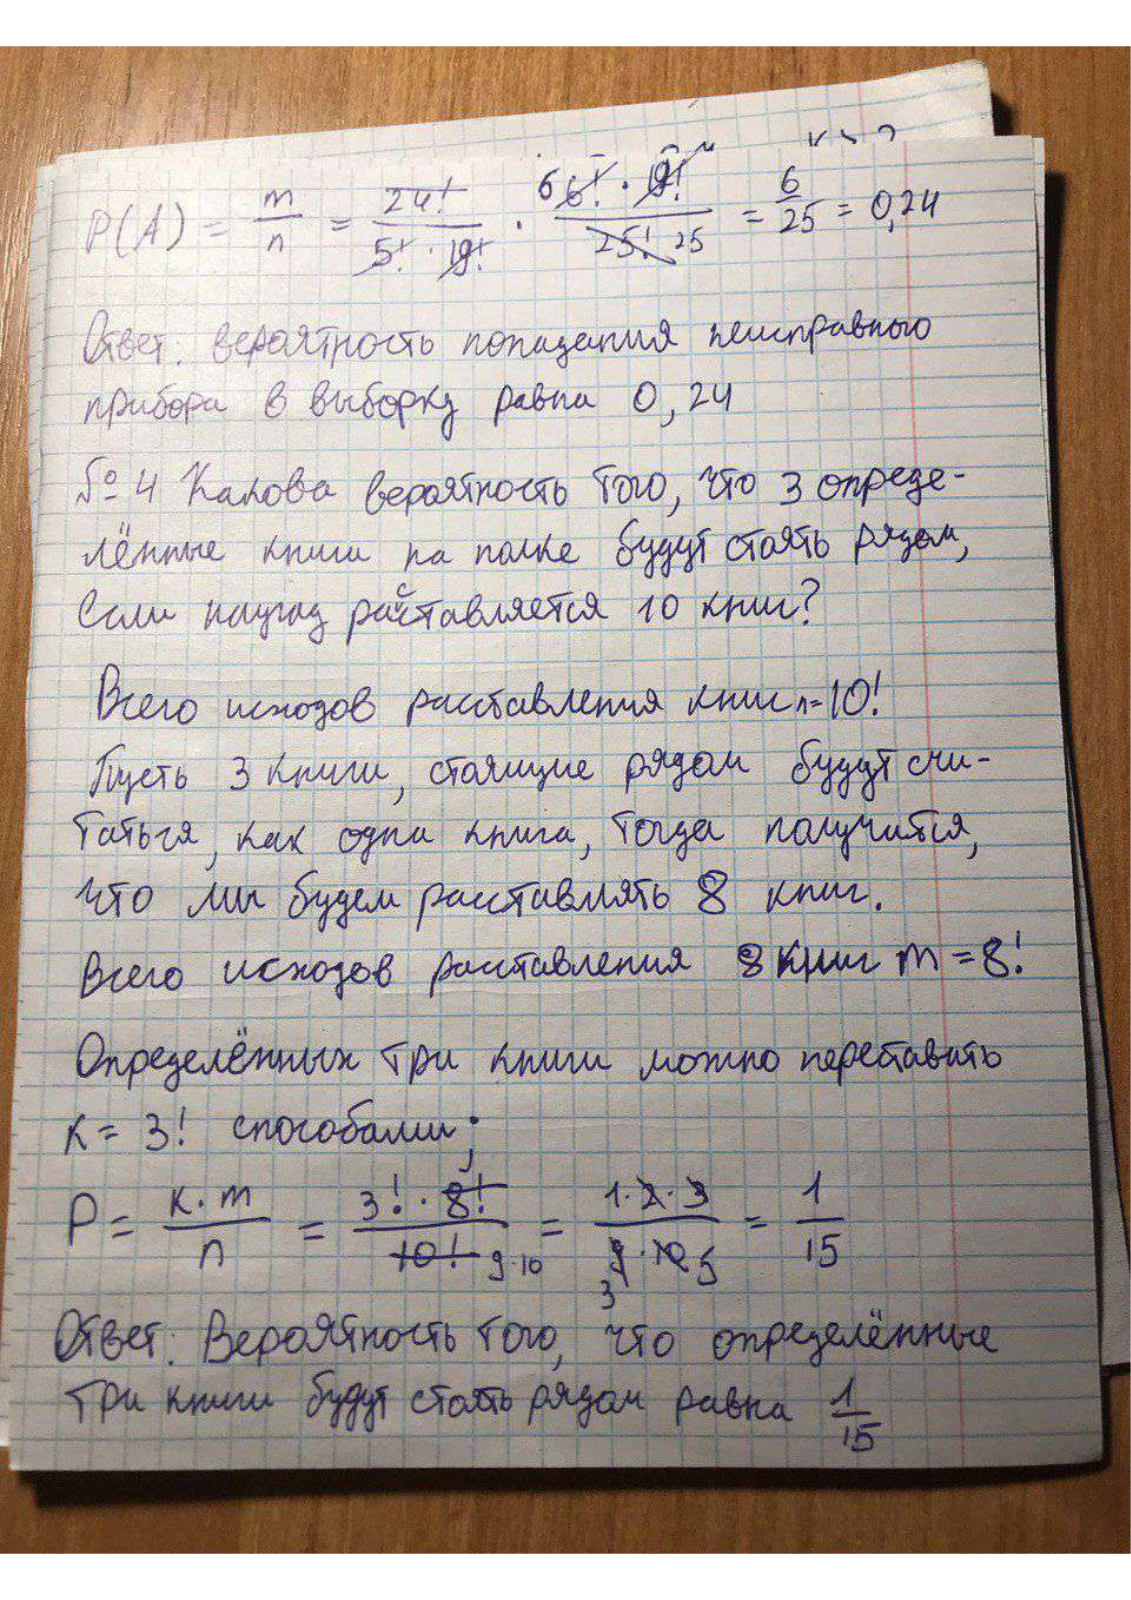 P(A) = m/n = 24!/(5! · 19!) · (6 6! · 19!)/(25! 25) = 6/25 = 0,24
Ответ: вероятность попадания неисправного
прибора в выборку равна 0,24
№ 4 Какова вероятность того, что 3 опреде-
лённые книги на полке будут стоять рядом,
если наугад расставляется 10 книг?
Всего исходов расставления книг n=10!
Пусть 3 книги, стоящие рядом будут счи-
таться, как одна книга, тогда получится,
что мы будем расставлять 8 книг.
Всего исходов расставления 8 книг m = 8!
Определённых три книги можно переставить
k = 3! способами;
P = k·m/n = 3!·8!/10! 9·10 = 1·2·3/9·10 3 5 = 1/15
Ответ: Вероятность того, что определённые
три книги будут стоять рядом равна 1/15